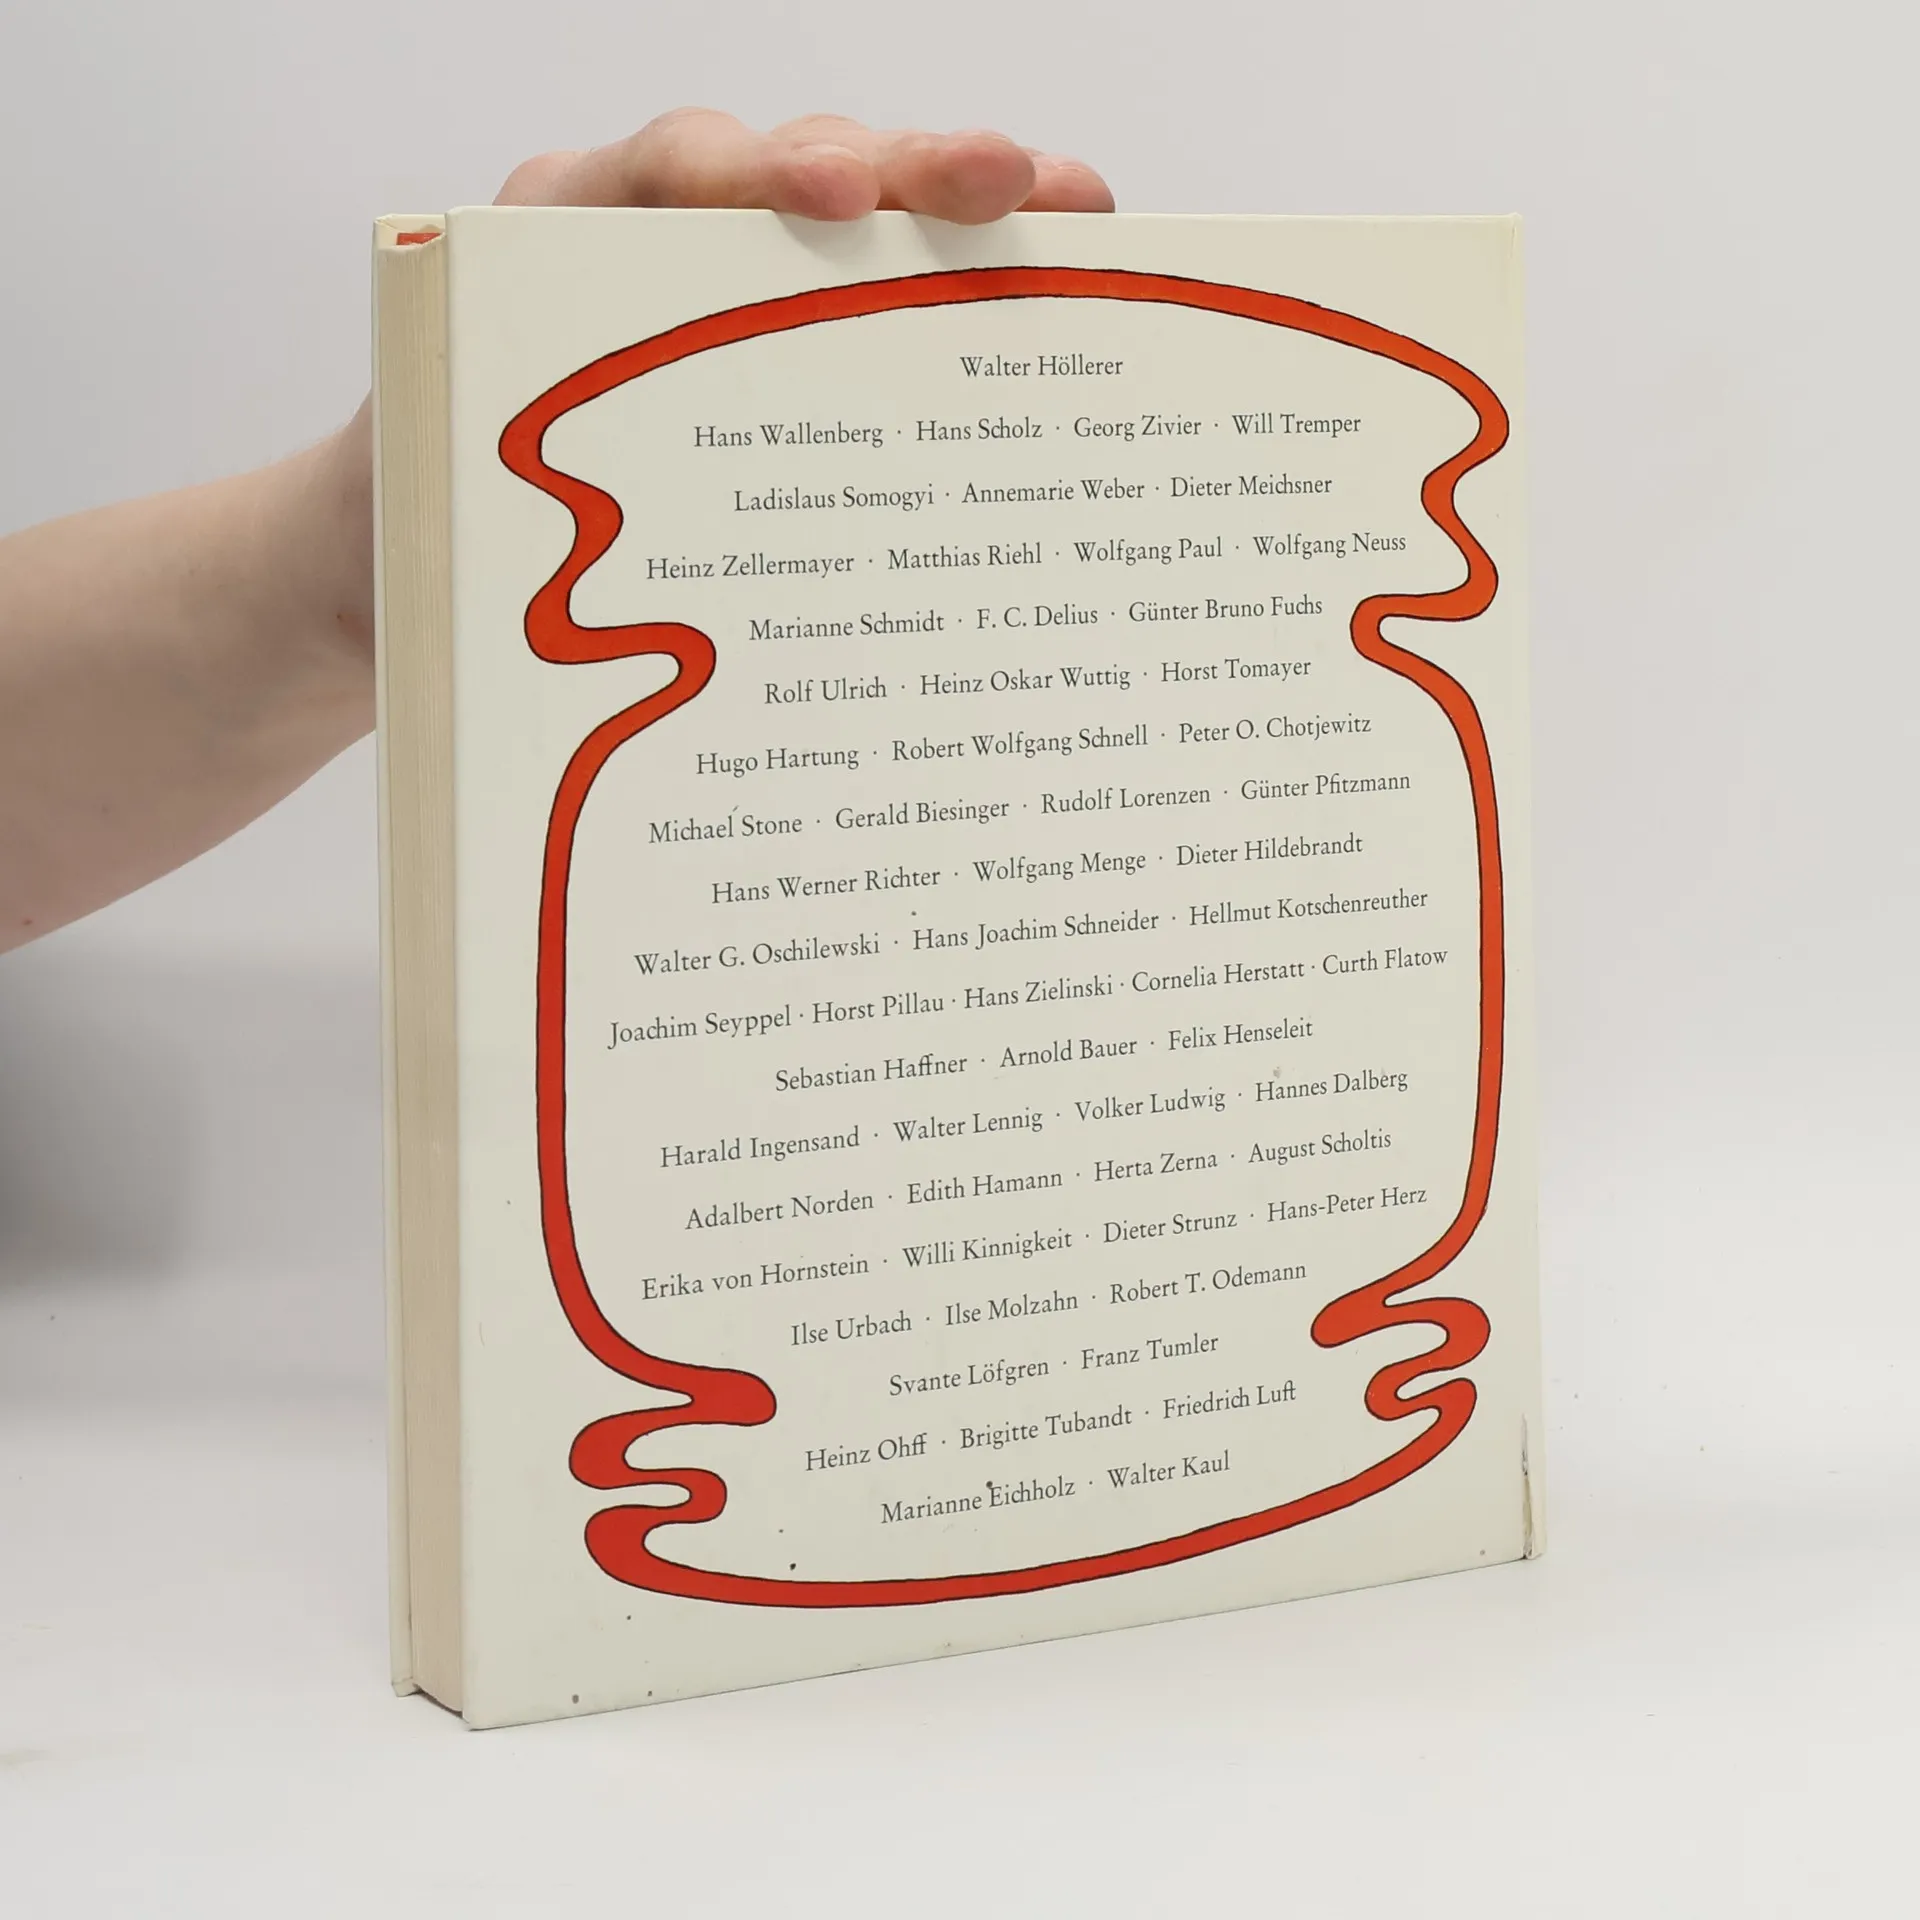 Walter Höllerer
Hans Wallenberg · Hans Scholz · Georg Zivier · Will Tremper
Ladislaus Somogyi · Annemarie Weber · Dieter Meichsner
Heinz Zellermayer · Matthias Riehl · Wolfgang Paul · Wolfgang Neuss
Marianne Schmidt · F. C. Delius · Günter Bruno Fuchs
Rolf Ulrich · Heinz Oskar Wuttig · Horst Tomayer
Hugo Hartung · Robert Wolfgang Schnell · Peter O. Chotjewitz
Michael Stone · Gerald Biesinger · Rudolf Lorenzen · Günter Pfitzmann
Hans Werner Richter · Wolfgang Menge · Dieter Hildebrandt
Walter G. Oschilewski · Hans Joachim Schneider · Hellmut Kotschenreuther
Joachim Seyppel · Horst Pillau · Hans Zielinski · Cornelia Herstatt · Curth Flatow
Sebastian Haffner · Arnold Bauer · Felix Henseleit
Harald Ingensand · Walter Lennig · Volker Ludwig · Hannes Dalberg
Adalbert Norden · Edith Hamann · Herta Zerna · August Scholtis
Erika von Hornstein · Willi Kinnigkeit · Dieter Strunz · Hans-Peter Herz
Ilse Urbach · Ilse Molzahn · Robert T. Odemann
Svante Löfgren · Franz Tumler
Heinz Ohff · Brigitte Tubandt · Friedrich Luft
Marianne Eichholz · Walter Kaul